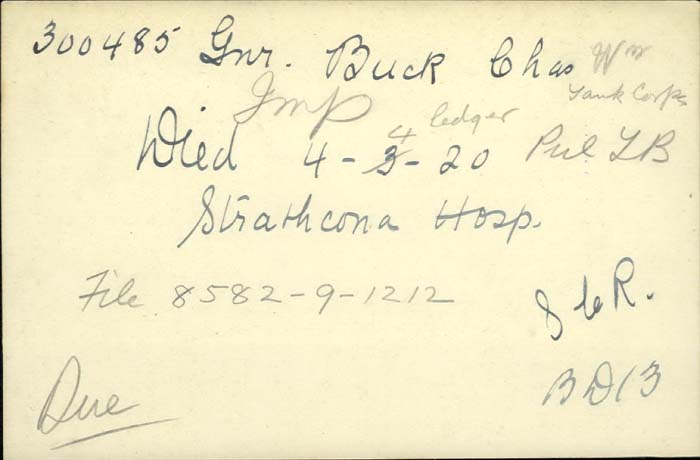 300485 Gnr. Buck Chas Wm
Tank Corps
Imp
4 ledger
Died 4-3-20 Pul TB
Strathcona Hosp.
File 8582-9-1212
S & R.
BD13
Due